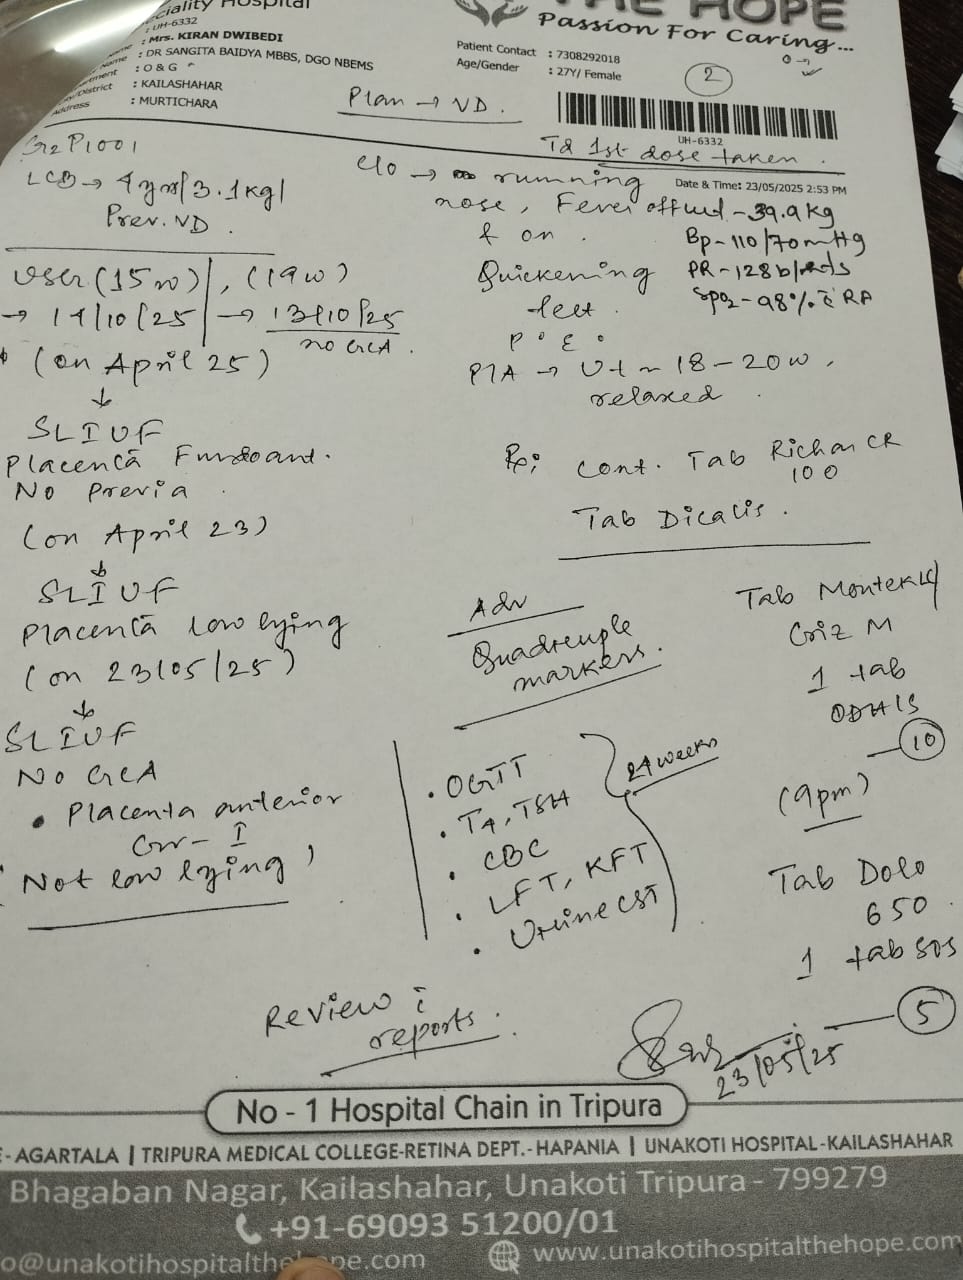 ciality Hospital
THE HOPE
Passion For Caring...
: UH-6332
: Mrs. KIRAN DWIBEDI
Name : DR SANGITA BAIDYA MBBS, DGO NBEMS
: O & G
/District : KAILASHAHAR
Address : MURTICHARA
Patient Contact : 7308292018
Age/Gender : 27Y/ Female
2
Plan → VD.
UH-6332
Td 1st dose taken.
Date & Time: 23/05/2025 2:53 PM
G2P1001
LCB → 4 yrs/3.1kg/
Prev. VD.
USG (15w), (19w)
→ 14/10/25 → 13/10/25
no GCA.
(on April 25)
↓
SLIUF
Placenta Fundoant.
No Previa.
(on April 23)
↓
SLIUF
Placenta low lying
(on 23/05/25)
↓
SLIUF
No GCA
• Placenta anterior
Gr - I
Not low lying
C/o → running
nose, Fever off
& on.
Quickening
felt.
P° E°
P/A → Ut ~ 18-20w,
relaxed.
wt - 39.9kg
Bp - 110/70mmHg
PR - 128 b/
SpO2 - 98% c̄ RA
Rx; Cont. Tab Richar CR
100
Tab Dicalis.
Adv
Quadruple
markers.
• OGTT
• T4, TSH
• CBC
• LFT, KFT
• Urine CST
24 weeks
Tab
1 tab
ODHS
10
(9pm)
Tab Dolo
650.
1 tab SOS
5
Review c̄
reports.
23/05/25
No - 1 Hospital Chain in Tripura
E - AGARTALA | TRIPURA MEDICAL COLLEGE-RETINA DEPT.- HAPANIA | UNAKOTI HOSPITAL-KAILASHAHAR
Bhagaban Nagar, Kailashahar, Unakoti Tripura - 799279
+91-69093 51200/01
o@unakotihospitalthehope.com
www.unakotihospitalthehope.com